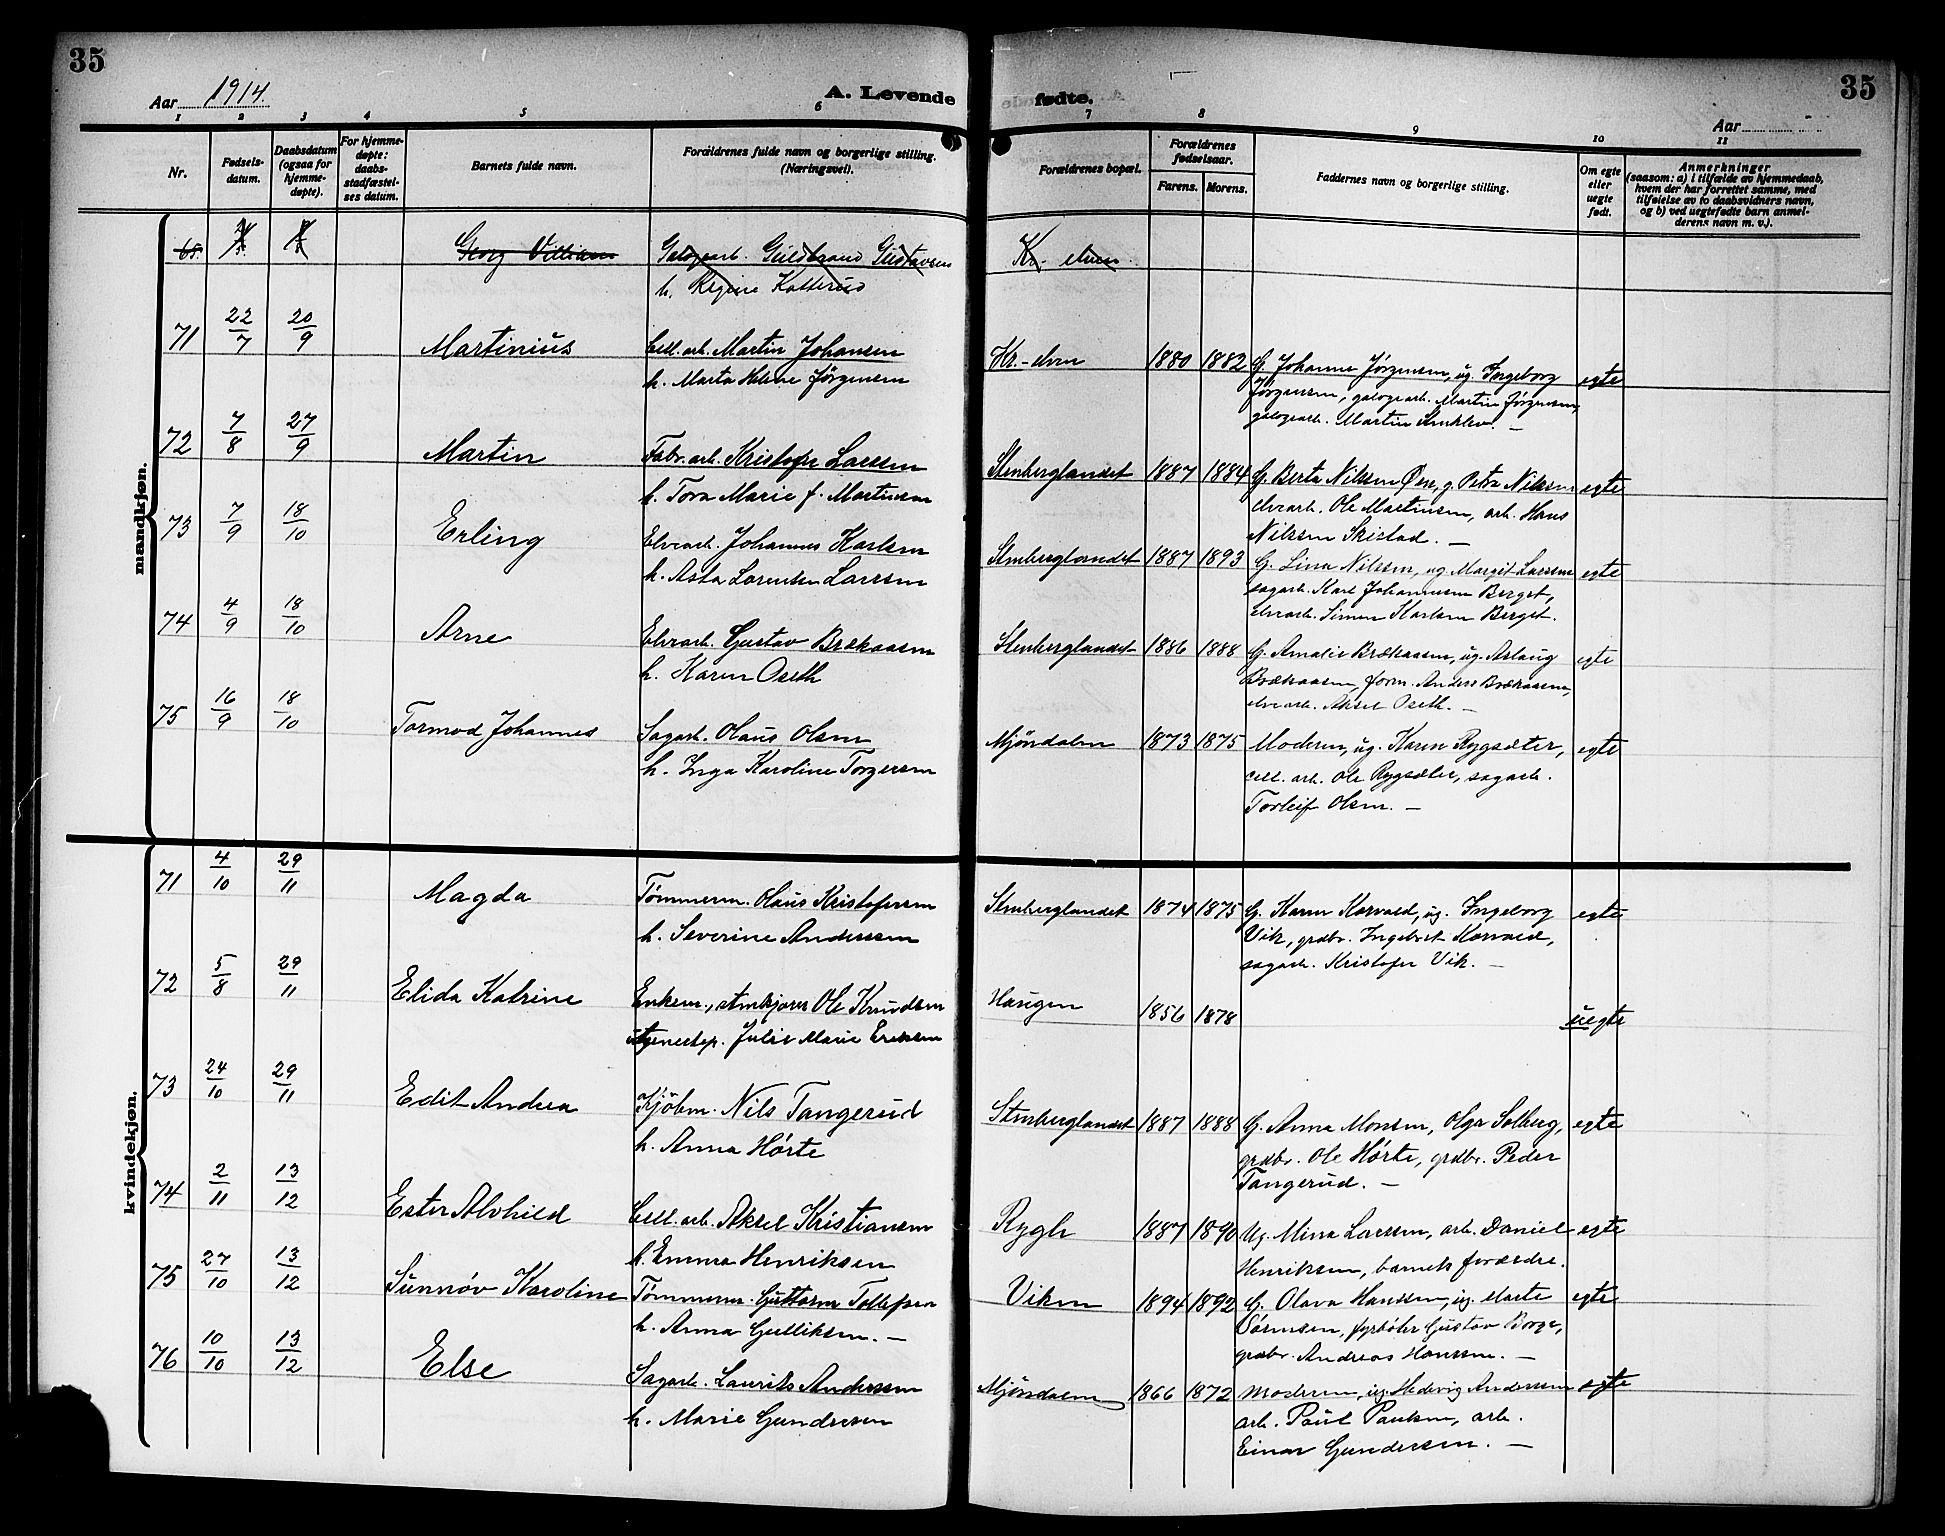 35
Aar 1914.
A. Levende
1 2 3 4 5 6
Nr.
Fødsels-
datum.
Daabsdatum
(ogsaa for
hjemme-
døpte).
For hjemme-
døpte:
daabs-
stadfæstel-
ses datum.
Barnets fulde navn.
Forældrenes fulde navn og borgerlige stilling.
(Næringsvei).
mandkjøn.
Georg Villiam
Guldbrand Gustavsen
h. Regine Katterud
71 22/7 20/9 Martinius Cell. arb. Martin Johansen
h. Marta Helene Jørgensen
72 7/8 27/9 Martin Fabr. arb. Kristofer Larsen
h. Tora Marie f. Martinsen
73 7/9 18/10 Erling Elvearb. Johannes Karlsen
h. Asta Lorentsen Larsen
74 4/9 18/10 Arne Elvearb. Gustav Brækaasen
h. Karen Oseth
75 16/9 18/10 Tormod Johannes Sagarb. Olaus Olsen
h. Inga Karoline Torgersen
kvindekjøn.
71 4/10 29/11 Magda Tømmerm. Olaus Kristofersen
h. Severine Anderssen
72 5/8 29/11 Elida Katrine Enkem., stenkjører Ole Knudsen
tjenestep. Julie Marie Eriksen
73 24/10 29/11 Edit Andrea Kjøbm. Nils Tangerud
h. Anna Hørte
74 2/11 13/12 Ester Alvhild Cell. arb. Aksel Kristiansen
h. Emma Henriksen
75 27/10 13/12 Sunnøv Karoline Tømmerm. Guttorm Tollefsen
h. Anna Gulliksen. —
76 10/10 13/12 Else Sagarb. Laurits Anderssen
h. Marie Gundersen
35
fødte.
Aar
7 8 9 10 11
Forældrenes bopæl.
Forældrenes
fødselsaar.
Farens. Morens.
Faddernes navn og borgerlige stilling.
Om egte
eller
uegte
født.
Anmerkninger
(saasom: a) i tilfælde av hjemmedaab,
hvem der har forrettet samme, med
tilføielse av to daabsvidners navn,
og b) ved uegtefødte barn anmel-
derens navn m. v.).
Kr. elven
Kr.-elven 1880 1882 G. Johanne Jørgensen, ug. Ingeborg egte
Jørgensen, galogearb. Martin Jørgensen,
galogearb. Martin —
Stenberglandet 1887 1884 G. Berta Nilssen Øen, g. Petra Nilssen egte
elvearb. Ole Martinsen, arb. Hans
Nilssen Skistad. —
Stenberglandet 1887 1893 G. Lina Nilssen, ug. Margit Larsen egte
sagarb. Karl Johannesen Berget,
elvearb. Simen Karlsen Berget.
Stenberglandet 1886 1888 G. Amalie Brækaasen, ug. Aslaug egte
Brækaasen, form. Anders Brækaasen,
elvearb. Aksel Oseth. —
Mjøndalen 1873 1875 Moderen, ug. Karen Rygsæter, egte
cell. arb. Ole Rygsæter, sagarb.
Torleif Olsen. —
Stenberglandet 1874 1875 G. Karen Korvald, ug. Ingeborg egte
Vik, grdbr. Ingebret Korvald,
sagarb. Kristofer Vik. —
Haugen 1856 1878 uegte
Stenberglandet 1887 1888 G. Anna Monsen, Olga Solberg, egte
grdbr. Ole Hørte, grdbr. Peder
Tangerud. —
Rygh 1887 1890 Ug. Mina Larssen, arb. Daniel egte
Henriksen, barnets forældre.
Viken 1894 1892 G. Olava Hanssen, ug. Marte egte
Sørensen, fyrbøter Gustav Borge,
grdbr. Andreas Hanssen. —
Mjøndalen 1866 1872 Moderen, ug. Hedevig Anderssen egte
arb. Paul Paulsen, arb.
Einar Gundersen. —